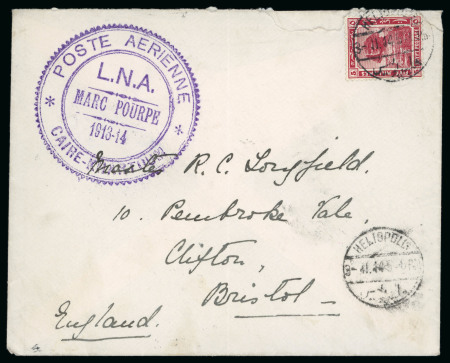 POSTE AERIENNE
L.N.A.
MARC POURPE
1913-14
CAIRE-
Master R. C. Longfield.
10. Pembroke Vale,
Clifton,
Bristol
England.
HELIOPOLIS